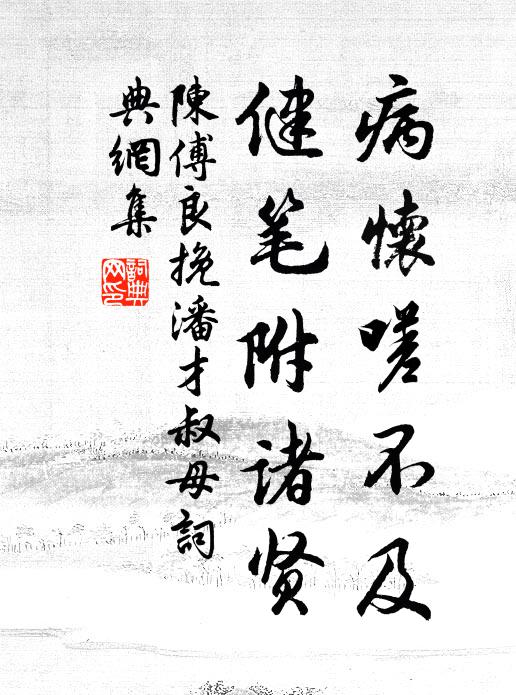 病懷嗟不及
健笔附诸贤
陳傅良挽潘才叔母詞
典網集
詞典网印